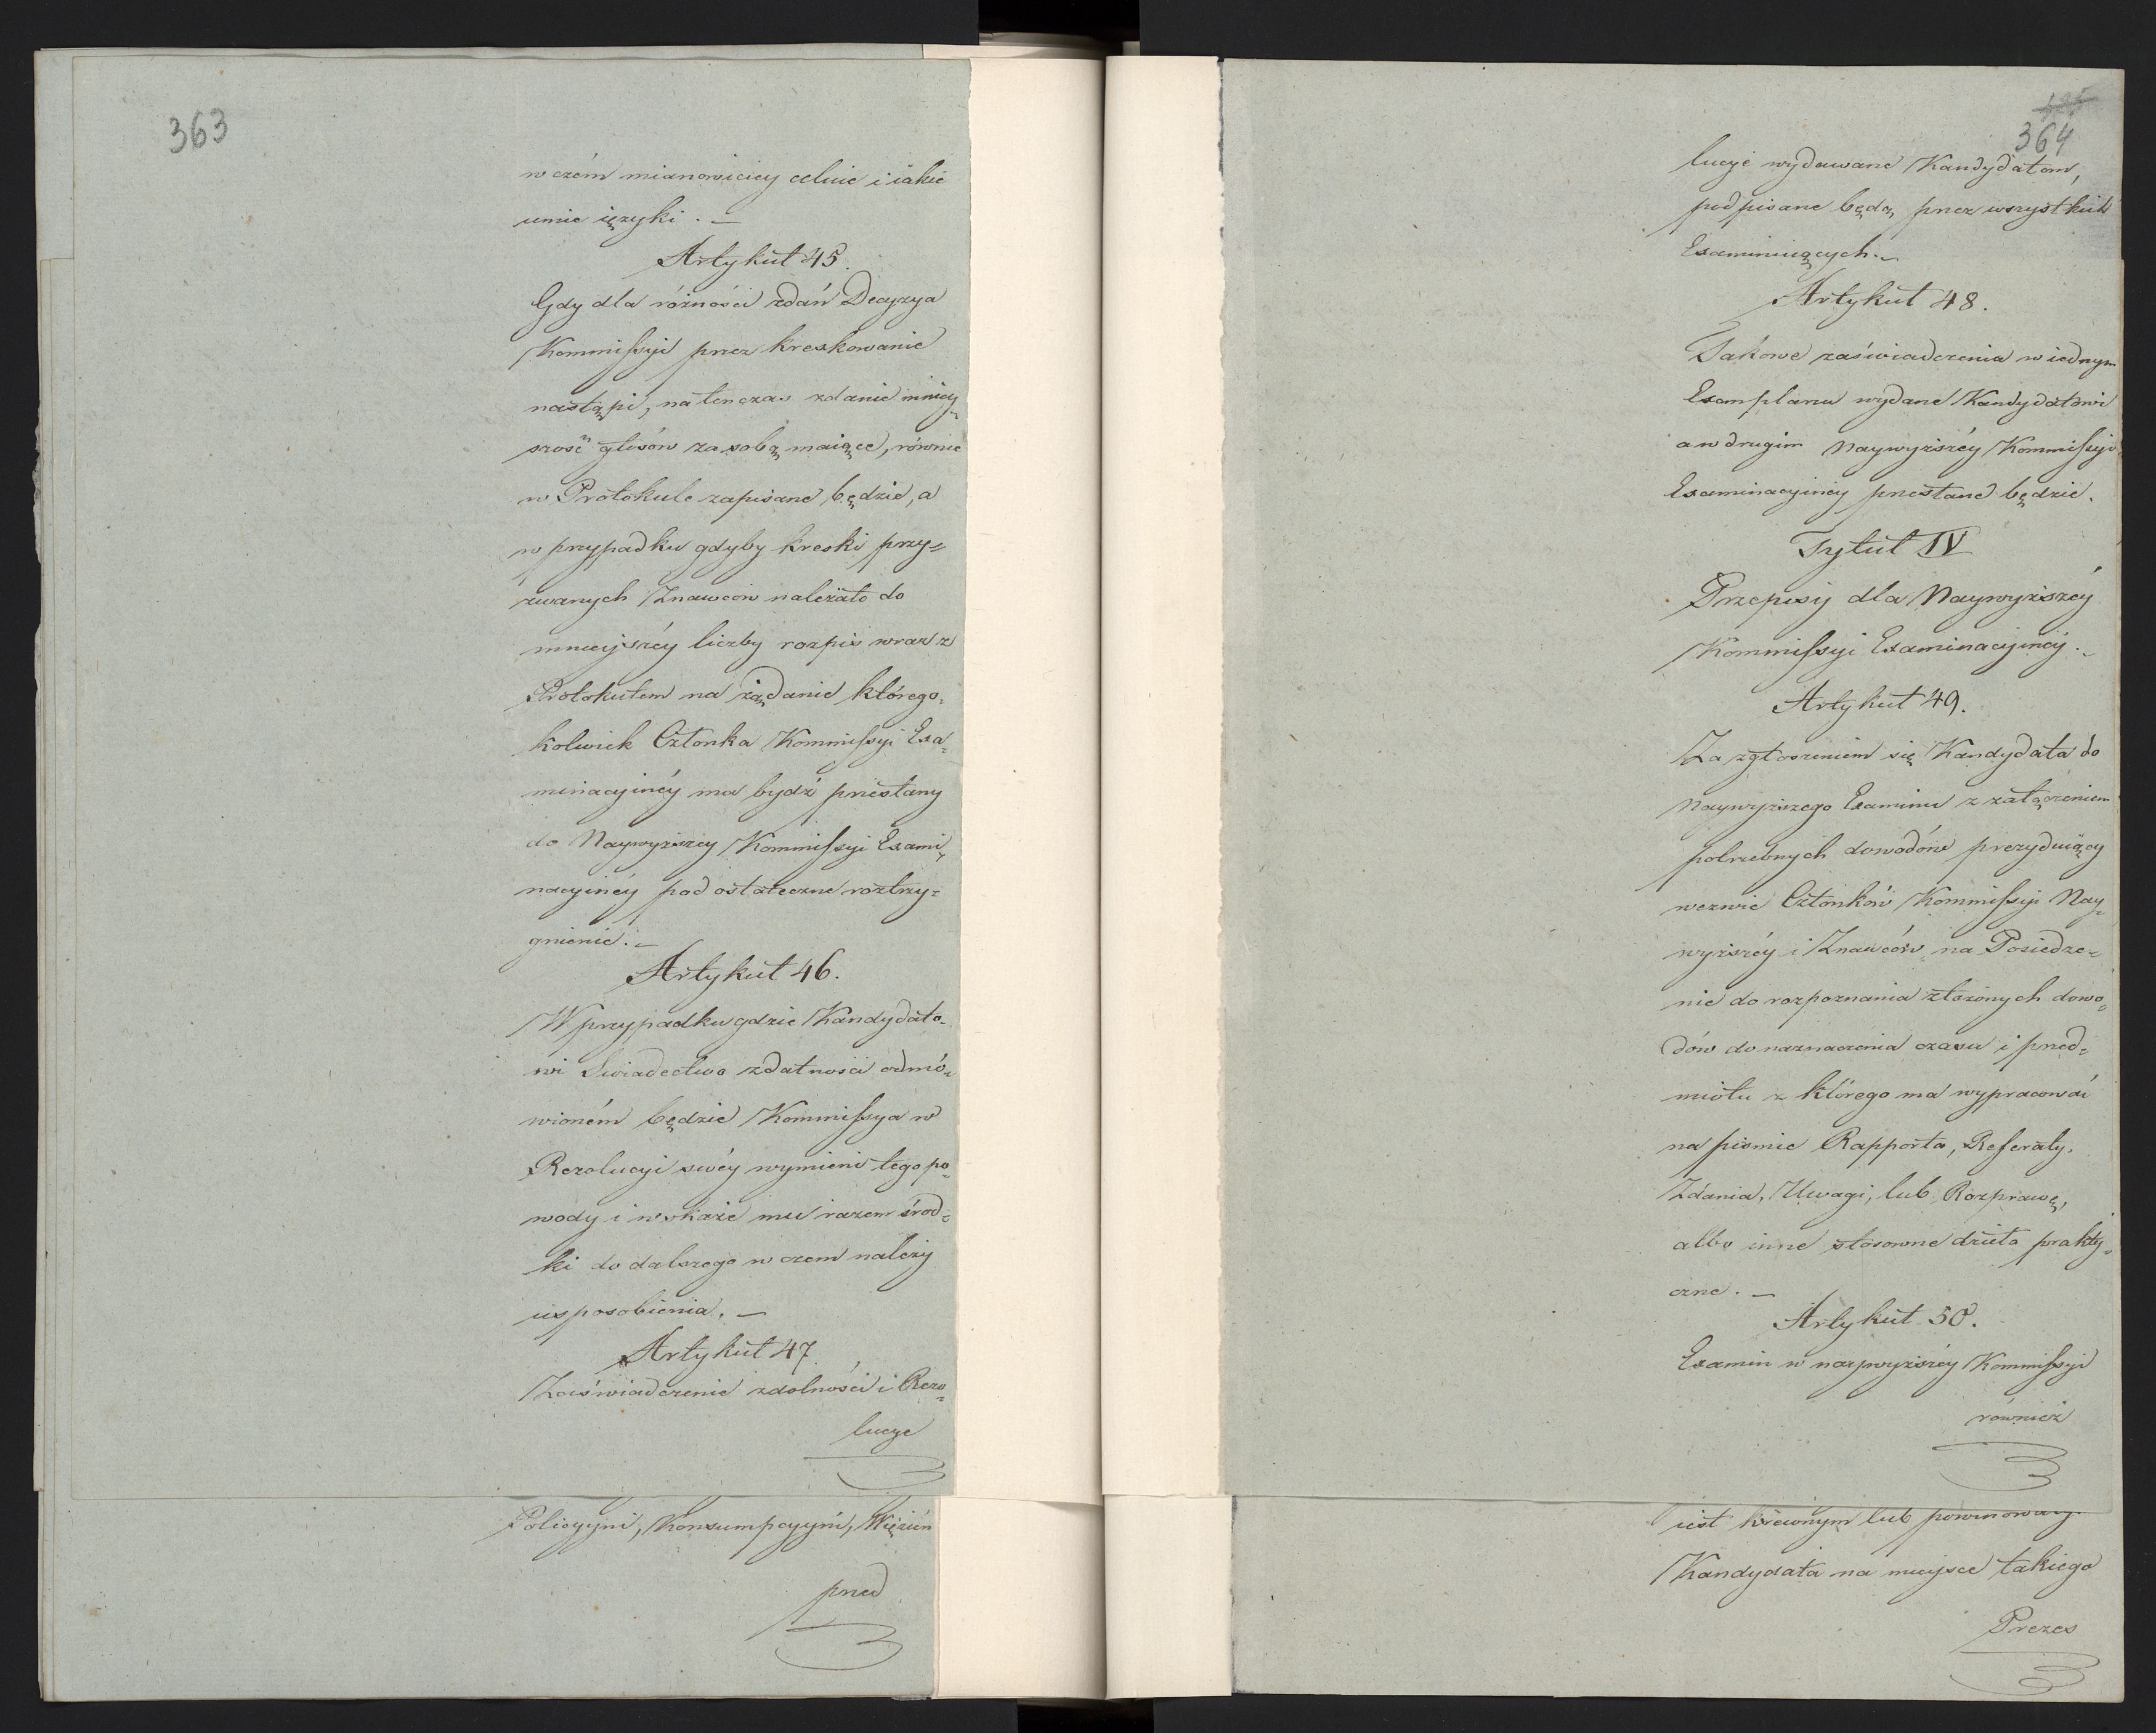 363
w czém mianowiciey celuie i iakie
umie ięzyki. —
Artykuł 45.
Gdy dla różności zdań Decyzya
Kommissyi przez kreskowanie
nastąpi, natenczas zdanie mniey„
szość głosów za sobą maiące, równie
w Protokule zapisane będzie, a
w przypadku gdyby kreski przy=
zwanych Znawców należało do
mnieyszéy liczby rozpis wraz z
Protokułem na żądanie którego„
kolwiek Członka Kommissyi Exa„
minacyinéy ma bydź przesłany
do Naywyższey Kommissyi Exami„
nacyinéy pod ostateczne roztrzy=
gnienie. —
Artykuł 46.
W przypadku gdzie Kandydato„
wi Swiadectwo zdatności odmó„
wioném będzie Kommissya w
Rezolucyi swéy wymieni tego po„
wody i wskaże mu razem środ„
ki do dalszego w czem należy
usposobienia. —
Artykuł 47.
Zaświadczenie zdolności i Rezo„
lucye
Policyyni, Konsumpcyyni, Więzień
przed
425
364
lucye wydawane Kandydatom,
podpisane będą przez wszystkich
Examinuiących. —
Artykuł 48.
Takowe zaświadczenia w iednym
Exemplarzu wydane Kandydatowi
a w drugim Naywyższéy Kommissyi
Examinacyinéy przesłane będzie.
Tytuł IV
Przepisy dla Naywyższéy
Kommissyi Examinacyinéy. —
Artykuł 49.
Za zgłoszeniem się Kandydata do
Naywyższego Examinu z załączeniem
potrzebnych dowodów prezyduiący
wezwie Członków Kommissyi Nay„
wyższéy i Znawców na Posiedze„
nie do rozpoznania złożonych dowo„
dów do naznaczenia czasu i przed„
miotu z którego ma wypracować
na pismie Rapporta, Referaty,
Zdania, Uwagi, lub Rozprawę,
albo inne stósowne dzieła prakty„
czne. —
Artykuł 50.
Examin w naywyższéy Kommissyi
również
iest krewnym lub powinowaty
Kandydata na mieysce takiego
Prezes